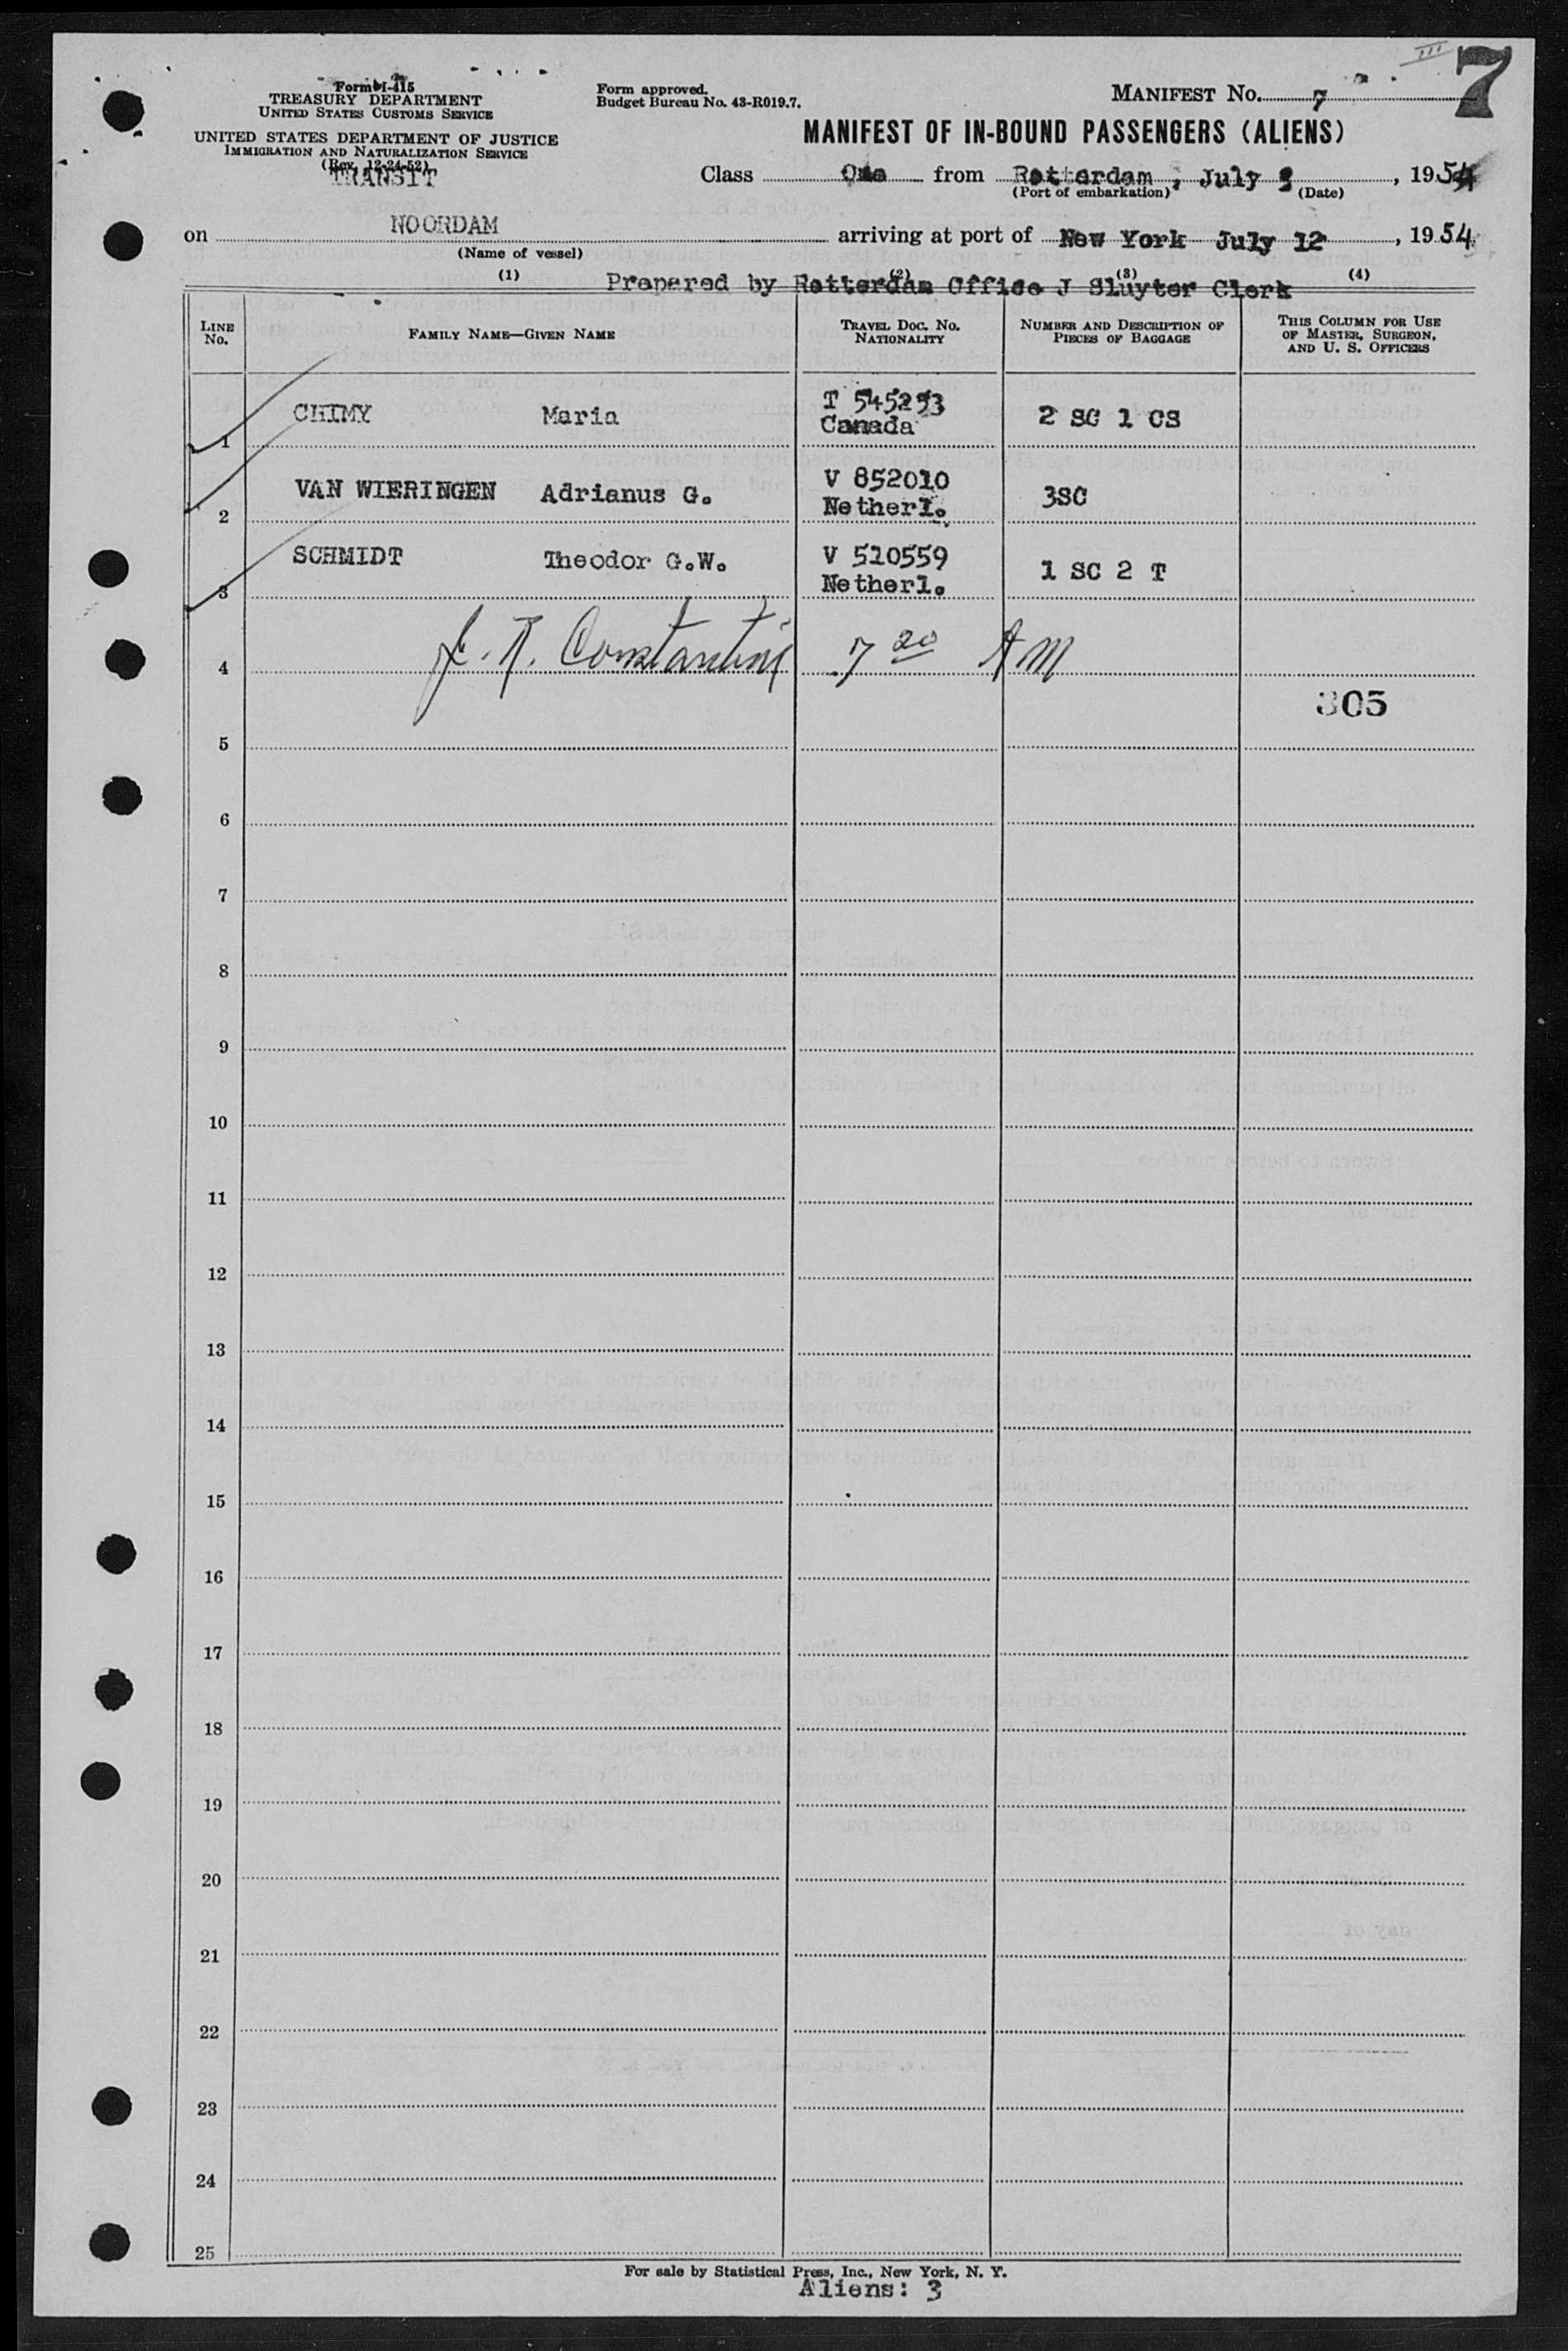 III 7
Form I-415
TREASURY DEPARTMENT
UNITED STATES CUSTOMS SERVICE
UNITED STATES DEPARTMENT OF JUSTICE
IMMIGRATION AND NATURALIZATION SERVICE
(Rev. 12-24-52)
TRANSIT
Form approved.
Budget Bureau No. 43-R019.7.
MANIFEST NO. 7
MANIFEST OF IN-BOUND PASSENGERS (ALIENS)
Class One from Rotterdam, July , 1954
(Port of embarkation) (Date)
on NOORDAM arriving at port of New York July 12, 1954
(Name of vessel)
(1) (2) (3) (4)
Prepared by Rotterdam Office J Sluyter Clerk
LINE NO. FAMILY NAME—GIVEN NAME TRAVEL DOC. NO. NATIONALITY NUMBER AND DESCRIPTION OF PIECES OF BAGGAGE THIS COLUMN FOR USE OF MASTER, SURGEON, AND U. S. OFFICERS
1 CHIMY Maria T 545253 Canada 2 SC 1 CS
2 VAN WIERINGEN Adrianus G. V 852010 Netherl. 3SC
3 SCHMIDT Theodor G.W. V 510559 Netherl. 1 SC 2 T
4 J. R. Constantini 7 20 AM
305
5
6
7
8
9
10
11
12
13
14
15
16
17
18
19
20
21
22
23
24
25
For sale by Statistical Press, Inc., New York, N. Y.
Aliens: 3